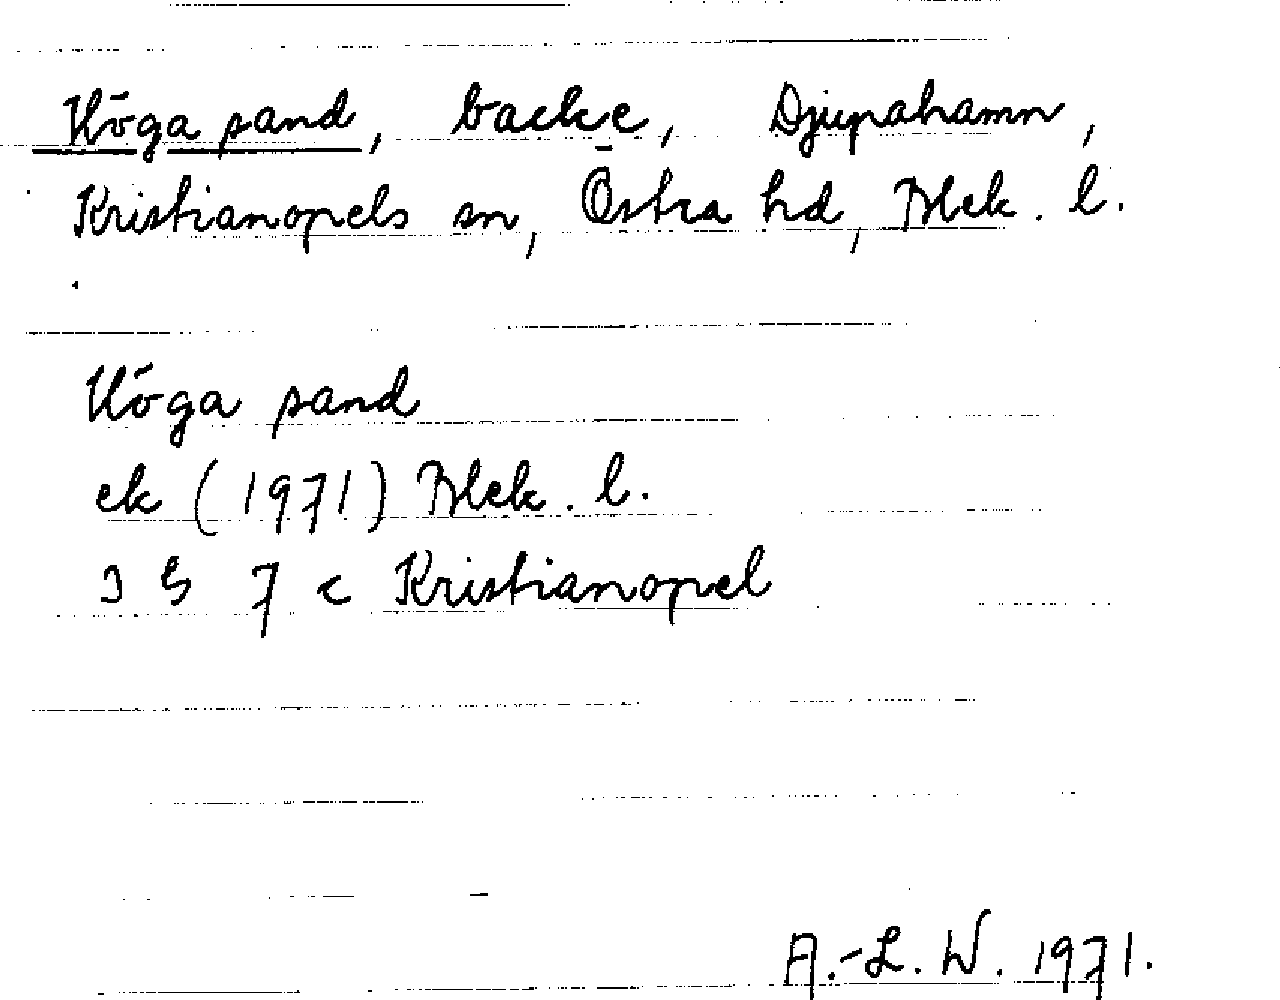 Höga sand, backe, Djupahamn,
Kristianopels sn, Östra hd, Blek. l.
Höga sand
ek (1971) Blek. l.
3 G 7 c Kristianopel
A.-L. W. 1971.